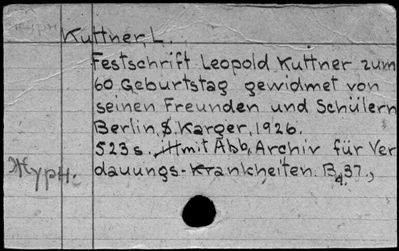 Kuttner, L.
Festschrift Leopold Kuttner zum
60 Geburtstag gewidmet von
seinen Freunden und Schülern
Berlin, S. Karger, 1926.
523 s. mit Abb. Archiv für Ver
dauungs-Krankheiten. Bd. 37.,
Журн.